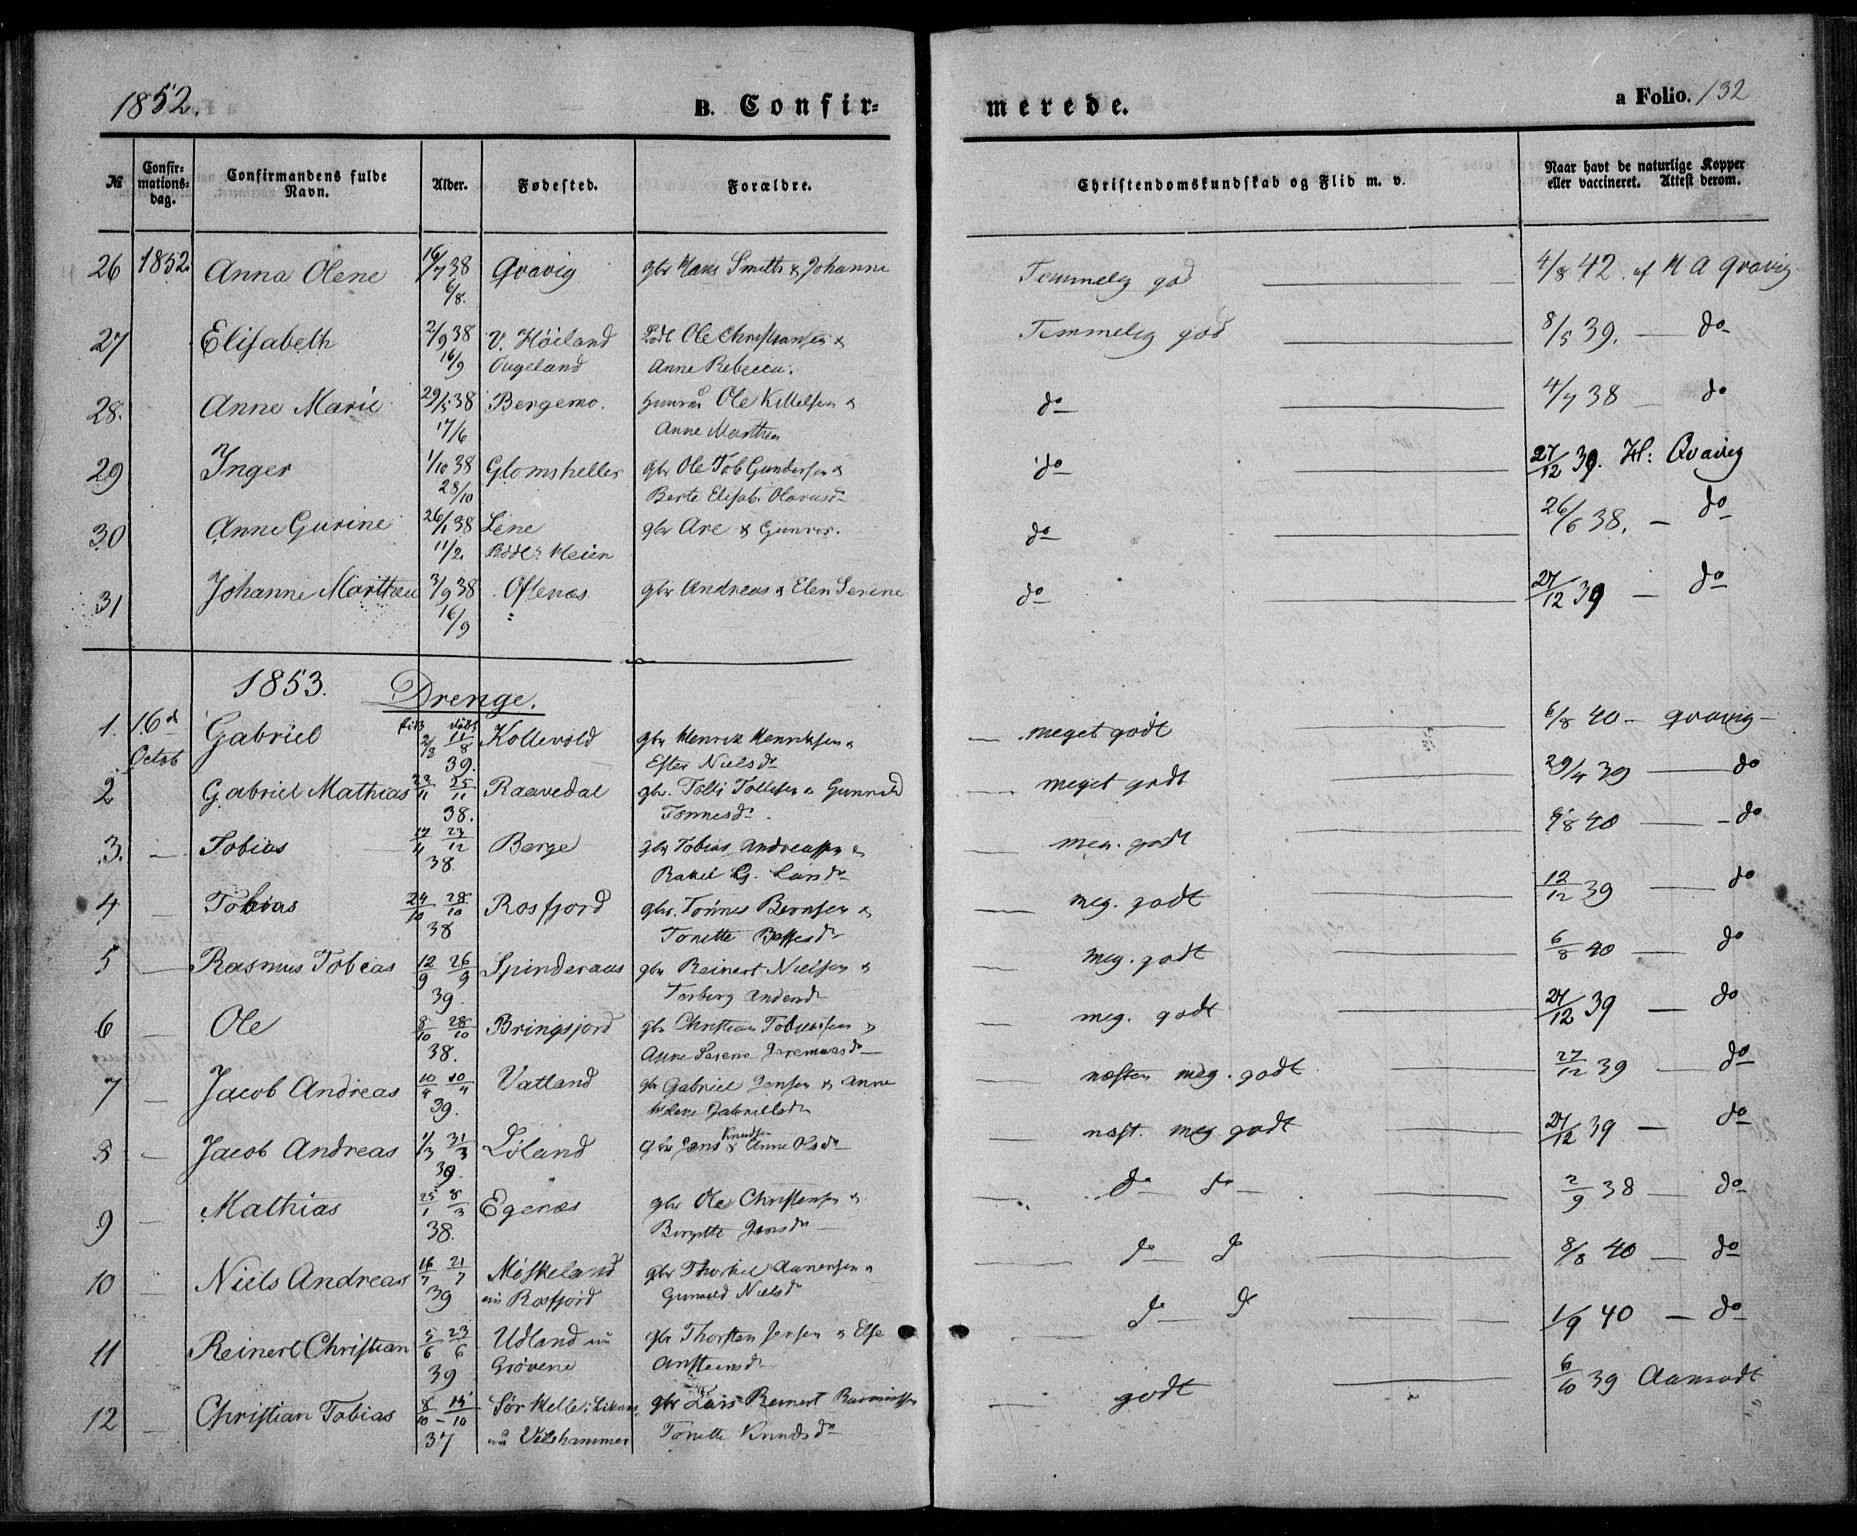 1852. B. Confirmerede. a Folio. 132
№ Confirmationsdag. Confirmandens fulde Navn. Alder. Fødested. Forældre. Christendomskundskab og Flid m. v. Naar havt de naturlige Kopper eller vaccineret. Attest derom.
26 1852. Anna Olene 16/7 38 Qvavig gbr Hans Smith & Johanne Temmelig god 4/8 42. af H A Qvavig
6/8.
27 Elisabeth 2/9 38 V. Höiland Ole Christiansen & Temmelig god 8/5 39. — do
16/9 Ougeland Anne Rebecca.
28. Anne Marie 29/5 38 Bergemo. Ole Kittelsen & do 4/7 38 — do
17/6 Anne Marthea
29 Inger 1/10 38 Glomsheller gbr Ole Tob Gundersen & do 27/12 39. H: Qvavig
28/10 Berte Elisab. Olavusdr
30 Anne Gurine 26/1 38 Lene gbr Are & Gunvor. do 26/6 38. — do
11/2. Meien
31 Johanne Marthea 3/9 38 Oftenæs gbr Andreas & Elen Serine do 27/12 39 — do
16/9
1853. Drenge.
1. 16de Gabriel född 2/8 döbt 11/8 Kollevold gbr Henrik Henriksen & — meget godt 6/8 40 — Qvavig —
Octob 39. Ester Nielsdr
2 Gabriel Mathias 22/11 25/11 Raavedal gbr. Tolli Tollisen & Gunnild — meget godt 29/4 39 — do
38. Tönnesdr
3. — Tobias 17/11 23/12 Berge gbr Tobias Andreassen & — meg. godt 6/8 40 — do
38. Rakel G. Larsdr
4 — Tobias 24/10 28/10 Rosfjord gbr. Tönnes Berntsen & — meg. godt 12/12 39 — do
38 Tonette
5 — Rasmus Tobias 12/9 26/9 Spinderaas gbr Reinert Nielsen & — meg. godt 6/8 40 — do
39. Torborg Andersdr
6 — Ole 8/10 28/10 Bringsjord gbr Christian Tobiassen & — meg. godt 27/12 39 — do
38. Anne Serene Jeremiasdr
7 — Jacob Andreas 10/4 20/4 Vatland gbr Gabriel Jensen & Anne — næsten meg. godt 27/12 39 — do
39. Helene Gabrielsdr
8 — Jacob Andreas 1/3 31/3 Löland gbr Jens Knudsen & Anne Olsdr — næst. meg godt 27/12 39 — do
39.
9 — Mathias 25/1 8/3 Egenæs gbr Ole Christensen & — do do — 2/9 38 — do
38. Birgitte Jensdr
10 — Niels Andreas 16/7 21/7 Möskeland gbr Thorkel Aanensen & — do do 8/8 40 — do
39 nu Rosfjord Gunvald Nielsdr
11 — Reinert Christian 5/6 23/6 Udland nu gbr Thorsten Jensen & Else — do do 1/9 40 — do
39 Grövene Anstensdr
12 — Christian Tobias 8/10 — 15/10 Sör Helle i Liknæs gbr Lars Reinert — godt 6/10 39 Aamodt
37 nu Velshammer Tonette Knudsdr